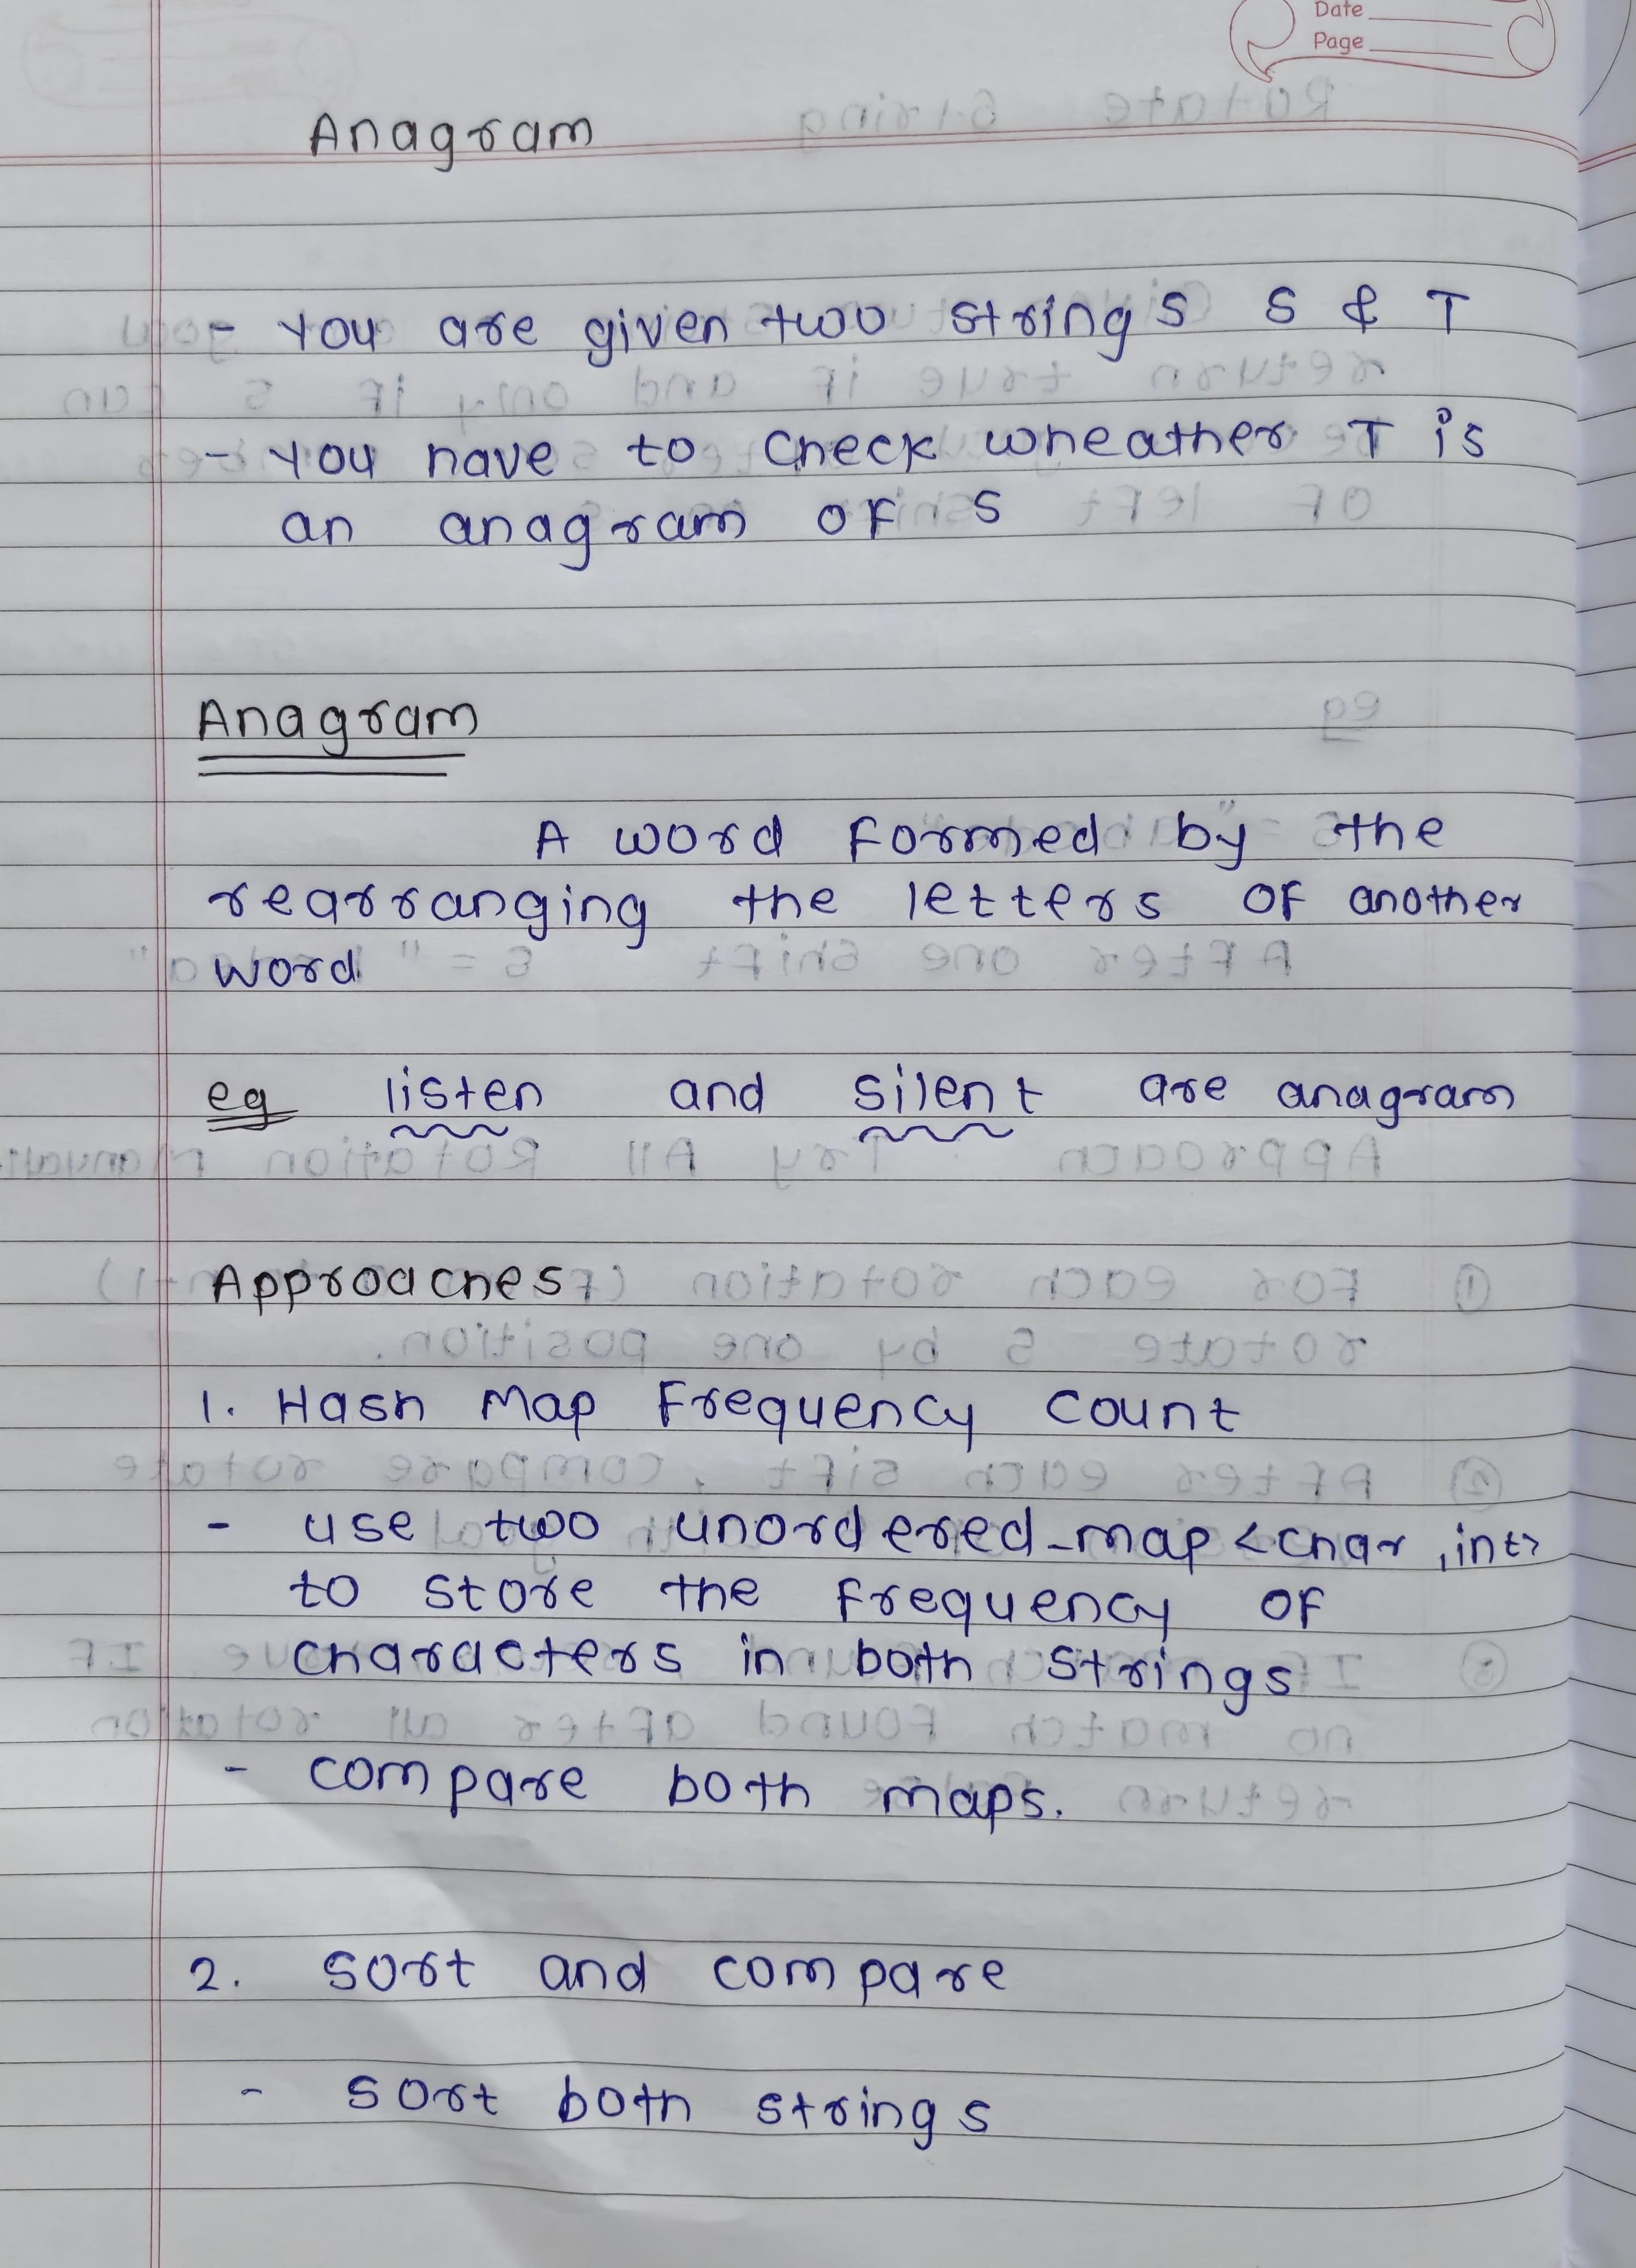 Date
Page
Anagram
- You are given two strings S & T
- You have to Check wheather T is
an anagram of S
Anagram
A word formed by the
rearranging the letters of another
word
eg listen and silent are anagram
Approaches
1. Hash Map Frequency Count
- use two unordered_map <char, int>
to store the frequency of
characters in both strings
- compare both maps.
2. sort and compare
- sort both strings